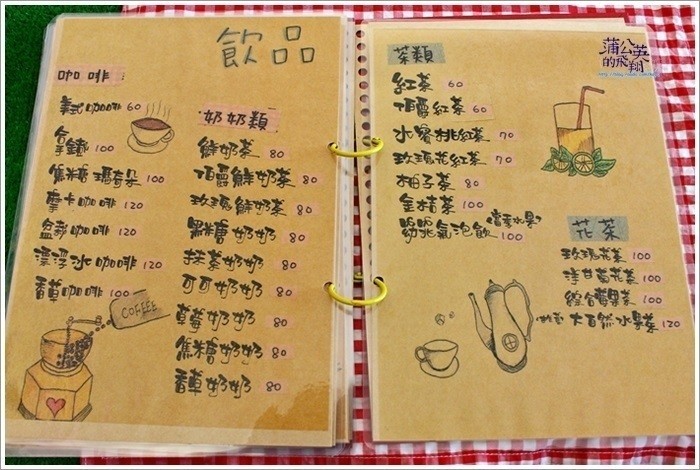 飲品
咖啡
美式咖啡 60
拿鐵 100
焦糖瑪奇朵 100
摩卡咖啡 120
盆栽咖啡 120
漂浮冰咖啡 120
香草咖啡 100
COFFEE
奶奶類
鮮奶茶 80
頂級鮮奶茶 80
玫瑰鮮奶茶 80
黑糖奶奶 80
抹茶奶奶 80
可可奶奶 80
草莓奶奶 80
焦糖奶奶 80
香草奶奶 80
茶類
紅茶 60
頂級紅茶 60
水蜜桃紅茶 70
玫瑰花紅茶 70
柚子茶 80
金桔茶 100
氣泡飲(當季水果) 100
花茶
玫瑰花茶 100
洋甘菊花茶 100
綜合莓果茶 100
大自然水果茶 120
蒲公英
的飛翔